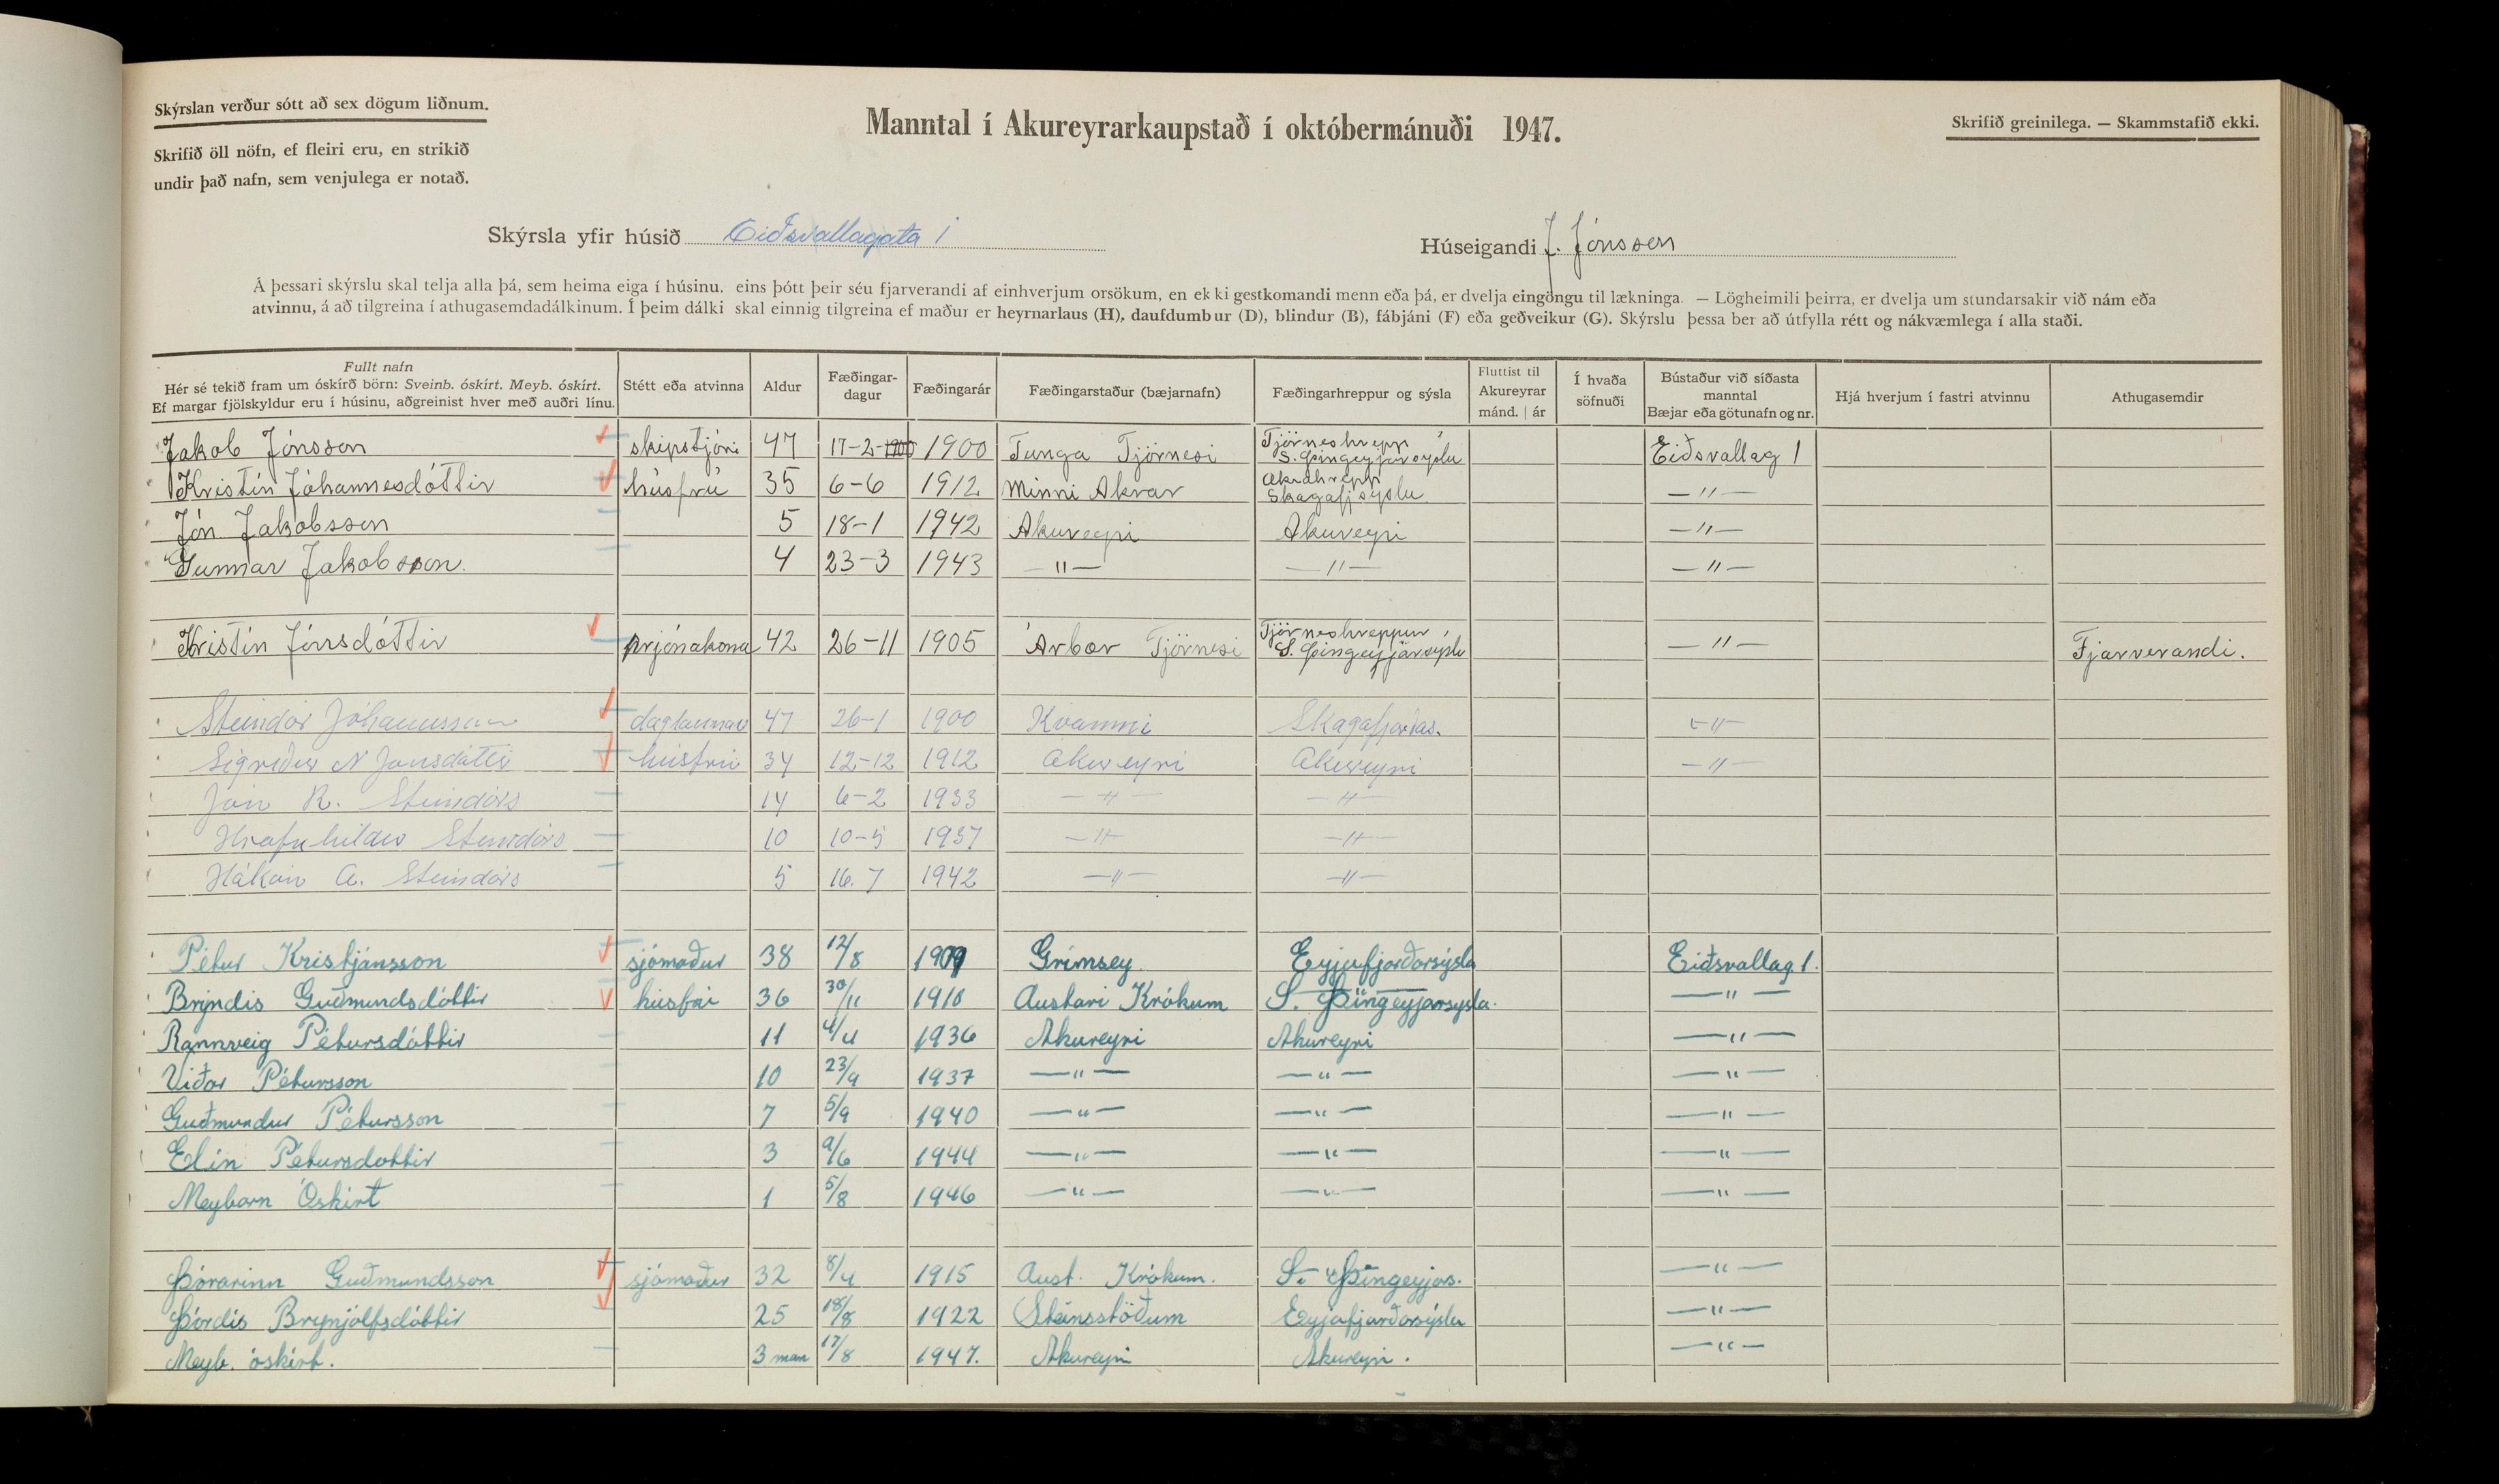 Skýrslan verður sótt að sex dögum liðnum.
Manntal í Akureyrarkaupstað í októbermánuði 1947.
Skrifið greinilega. — Skammstafið ekki.
Skrifið öll nöfn, ef fleiri eru, en strikið
undir það nafn, sem venjulega er notað.
Skýrsla yfir húsið Eiðsvallagata 1
Húseigandi J. Jónsson
Á þessari skýrslu skal telja alla þá, sem heima eiga í húsinu, eins þótt þeir séu fjarverandi af einhverjum orsökum, en ekki gestkomandi menn eða þá, er dvelja eingöngu til lækninga. — Lögheimili þeirra, er dvelja um stundarsakir við nám eða
atvinnu, á að tilgreina í athugasemdadálkinum. Í þeim dálki skal einnig tilgreina ef maður er heyrnarlaus (H), daufdumbur (D), blindur (B), fábjáni (F) eða geðveikur (G). Skýrslu þessa ber að útfylla rétt og nákvæmlega í alla staði.
Fullt nafn
Hér sé tekið fram um óskírð börn: Sveinb. óskírt. Meyb. óskírt.
Ef margar fjölskyldur eru í húsinu, aðgreinist hver með auðri línu.
Stétt eða atvinna
Aldur
Fæðingar-
dagur
Fæðingarár
Fæðingarstaður (bæjarnafn)
Fæðingarhreppur og sýsla
Fluttist til
Akureyrar
mánd. | ár
Í hvaða
söfnuði
Bústaður við síðasta
manntal
Bæjar eða götunafn og nr.
Hjá hverjum í fastri atvinnu
Athugasemdir
Jakob Jónsson skipstjóri 47 17-2-1900 1900 Tunga Tjörnesi Tjörneshrepp S. Þingeyjarsýslu Eiðsvallag 1
Kristín Jóhannesdóttir húsfrú 35 6-6 1912 Minni Akrar Akrahrepp Skagafj sýslu —"—
Jón Jakobsson 5 18-1 1942 Akureyri Akureyri —"—
Gunnar Jakobsson. 4 23-3 1943 —"— —"— —"—
Kristín Jónsdóttir prjónakona 42 26-11 1905 Árbær Tjörnesi Tjörneshreppur, S. Þingeyjarsýslu —"— Fjarverandi.
Steindór Jóhannesson daglaunam 47 26-1 1900 Kvammi Skagafjarðas. —"—
Sigríður N Jónsdóttir húsfrú 34 12-12 1912 Akureyri Akureyri —"—
Jón R. Steindórs 14 6-2 1933 —"— —"—
Hrafnhildur Steindórs 10 10-5 1937 —"— —"—
Hákon A. Steindórs 5 16.7 1942 —"— —"—
Pétur Kristjánsson sjómaður 38 12/8 1909 Grímsey Eyjafjarðarsýsla Eiðsvallag 1.
Bryndís Guðmundsdóttir húsfrú 36 30/11 1910 Austari Krókum S. Þingeyjarsýsla. —"—
Rannveig Pétursdóttir 11 4/4 1936 Akureyri Akureyri —"—
Viðar Pétursson 10 23/9 1937 —"— —"— —"—
Guðmundur Pétursson 7 5/9 1940 —"— —"— —"—
Elín Pétursdottir 3 9/6 1944 —"— —"— —"—
Meybarn Óskírt 1 5/8 1946 —"— —"— —"—
Þórarinn Guðmundsson sjómaður 32 8/4 1915 Aust. Krókum. S. Þingeyjars. —"—
Þórdís Brynjólfsdóttir 25 18/8 1922 Steinsstöðum Eyjafjarðarsýsla —"—
Meyb. óskírt. 3 mán 17/8 1947. Akureyri Akureyri. —"—